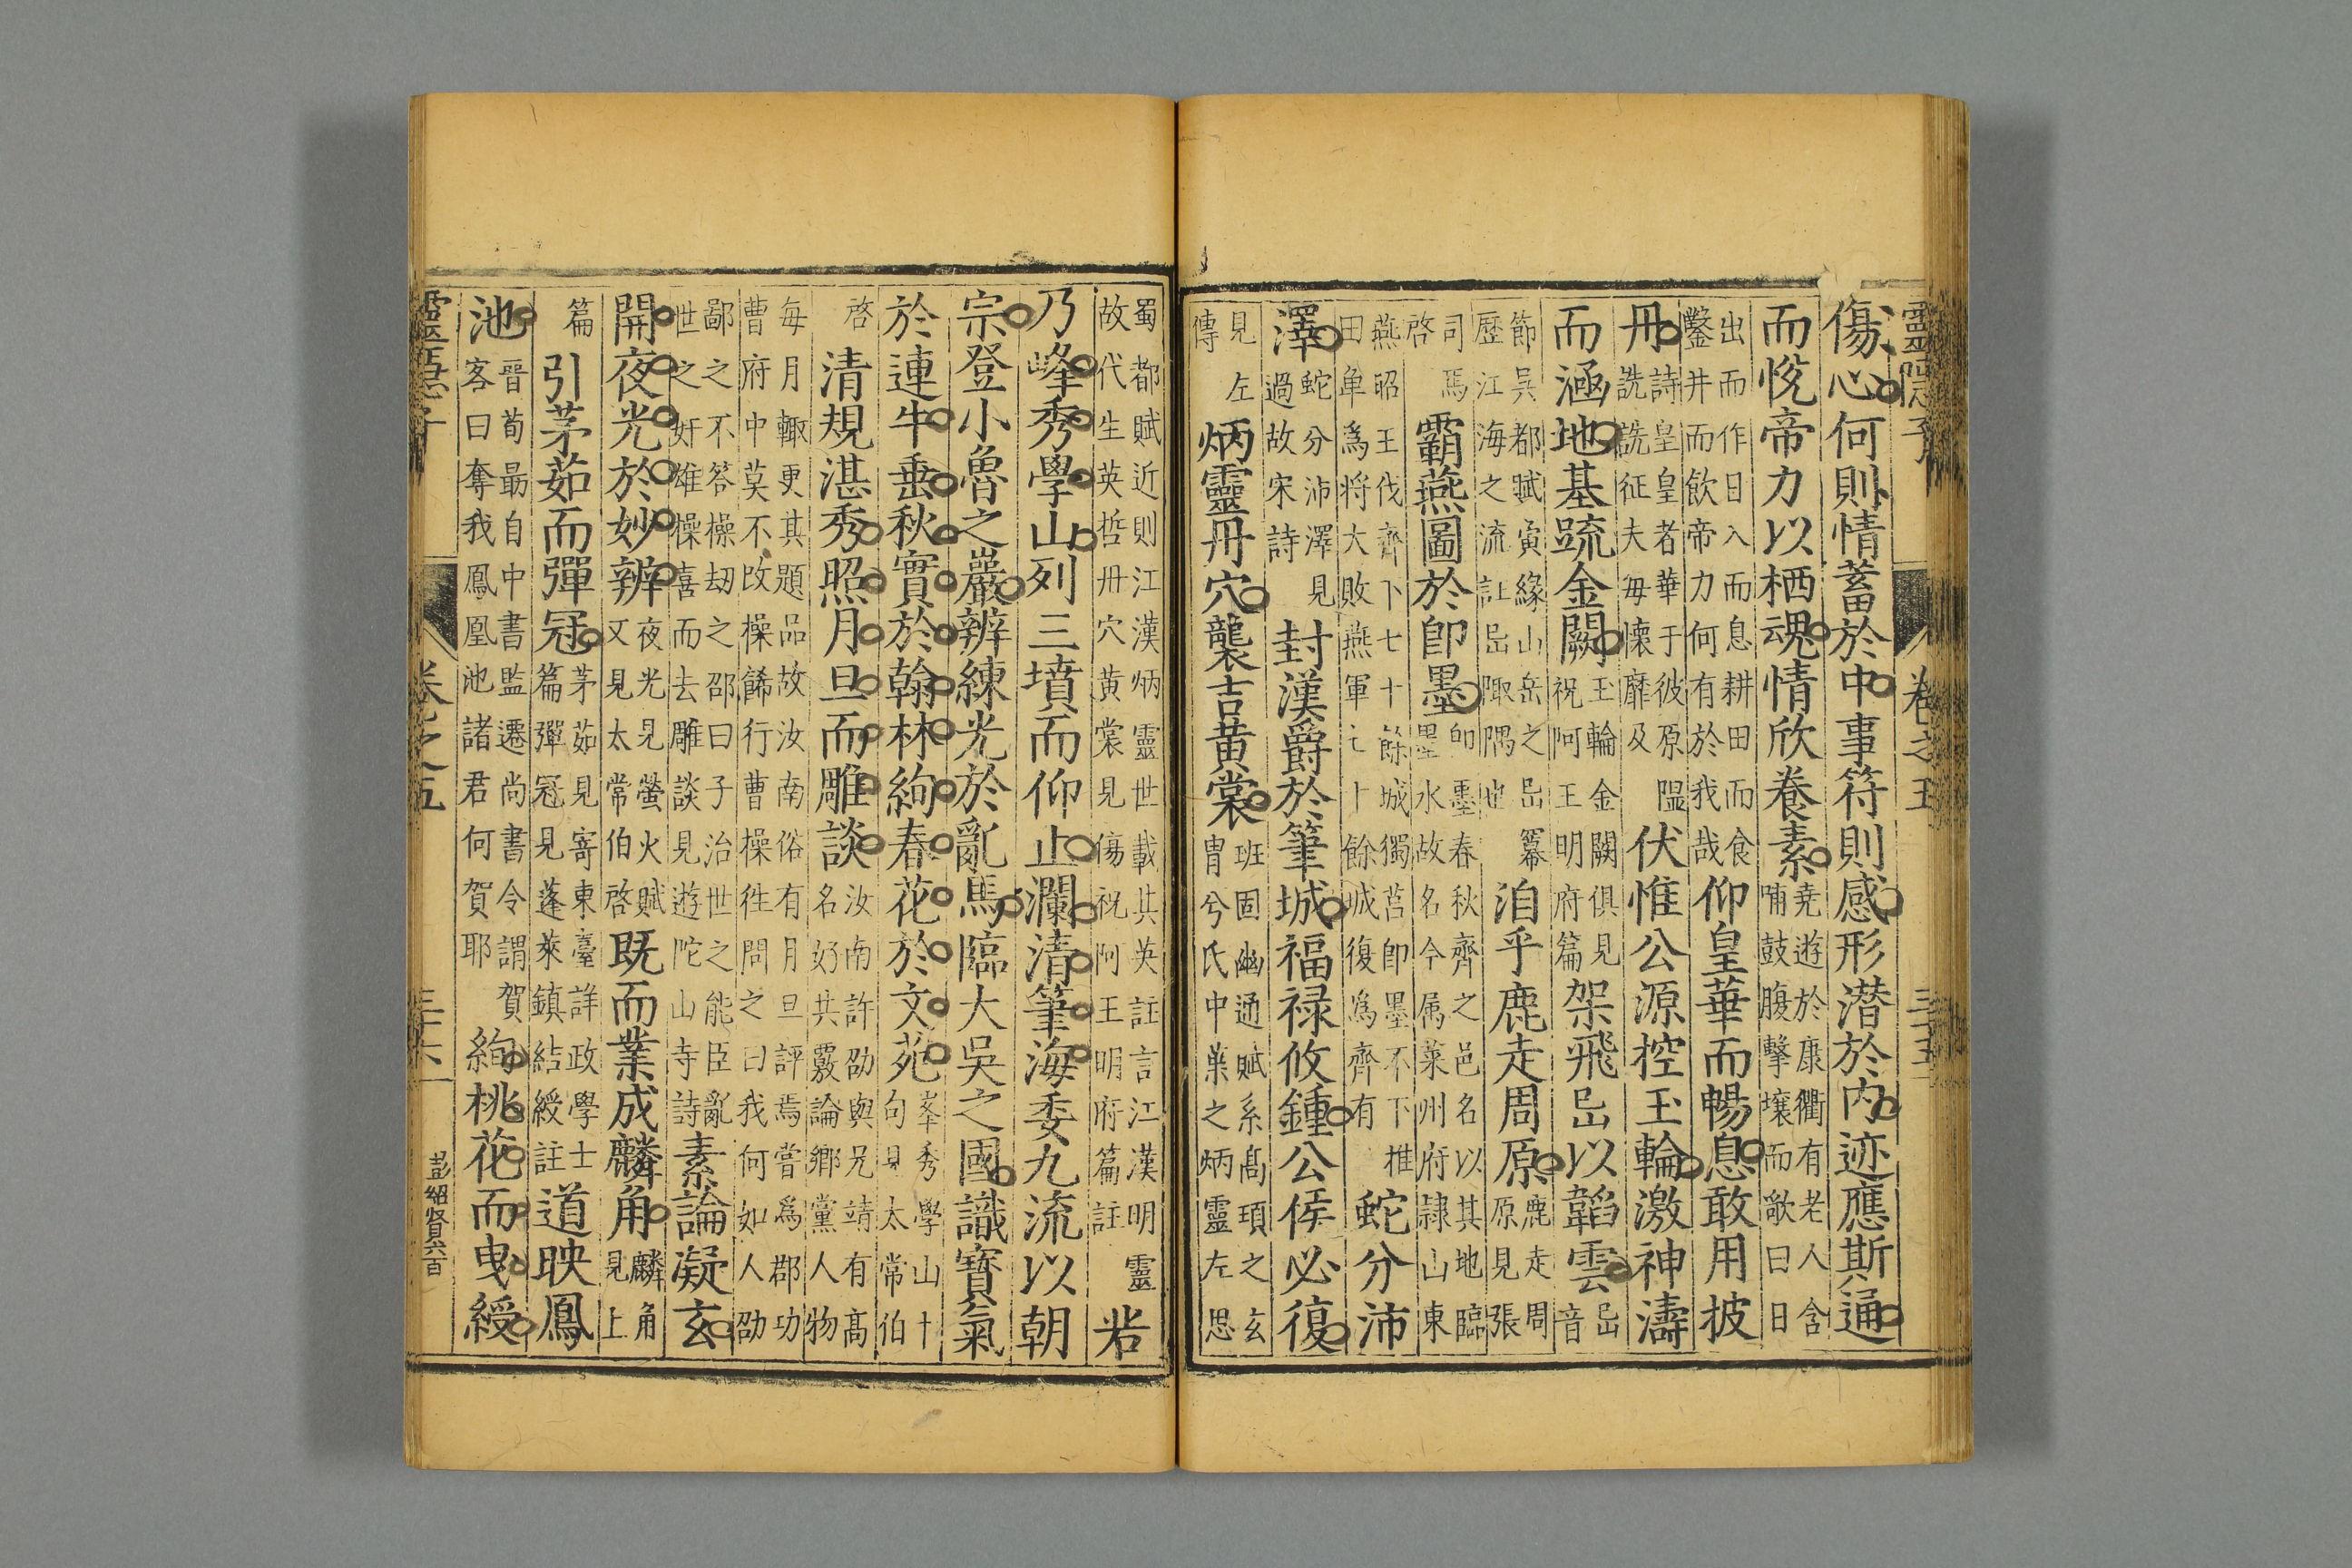 靈隱子 卷之五 三十五
傷心何則情蓄於中事符則感形潜於内迹應斯通
而悅帝力以栖魂情欣養素堯遊於康衢有老人含哺鼓腹擊壤而歌曰日
出而作日入而息耕田而食鑿井而飲帝力何有於我哉仰皇華而暢息敢用披
丹詩皇皇者華于彼原隰詵詵征夫每懷靡及伏惟公源控玉輪激神濤
而涵地基疏金闕玉輪金闕俱見祝阿王明府篇架飛岊以韜雲岊音
節吳都賦寅緣山岳之岊冪歷江海之流註岊陬隅也洎乎鹿走周原鹿走周原見張
司馬啓霸燕圖於卽墨卽墨春秋齊之邑名以其地臨墨水故名今属萊州府隷山東
燕昭王伐齊下七十餘城獨莒卽墨不下惟田单爲将大敗燕軍七十餘城復爲齊有蛇分沛
澤蛇分沛澤見過故宋詩封漢爵於筆城福禄攸鍾公侯必復
見左傳炳靈丹穴襲吉黃裳班固幽通賦系高頊之玄胄兮氏中葉之炳靈左思
蜀都賦近則江漢炳靈世載其英註言江漢明靈故代生英哲丹穴黄裳見傷祝阿王明府篇註若
乃峰秀學山列三墳而仰止瀾清筆海委九流以朝
宗登小魯之巖辨練光於亂馬臨大吳之國識寶氣
於連牛垂秋實於翰林絢春花於文苑峯秀學山十句見太常伯
啓清規湛秀照月旦而雕談汝南許劭與兄靖有高名好共覈論鄉黨人物
每月輙更其題品故汝南俗有月旦評焉嘗爲郡功曹府中莫不改操餙行曹操徃問之曰我何如人劭
鄙之不答操刧之邵曰子治世之能臣亂世之奸雄操喜而去雕談見遊陀山寺詩素論凝玄
開夜光於妙辨夜光見螢火賦又見太常伯啓既而業成麟角麟角見上
篇引茅茹而彈冠茅茹見寄東臺詳政學士篇彈冠見蓬萊鎮結綬註道映鳳
池晉荀最自中書監遷尚書令謂賀客曰奪我鳳凰池諸君何賀耶絢桃花而曳綬
靈隱子 卷之五 三十六 彭紹賢六百